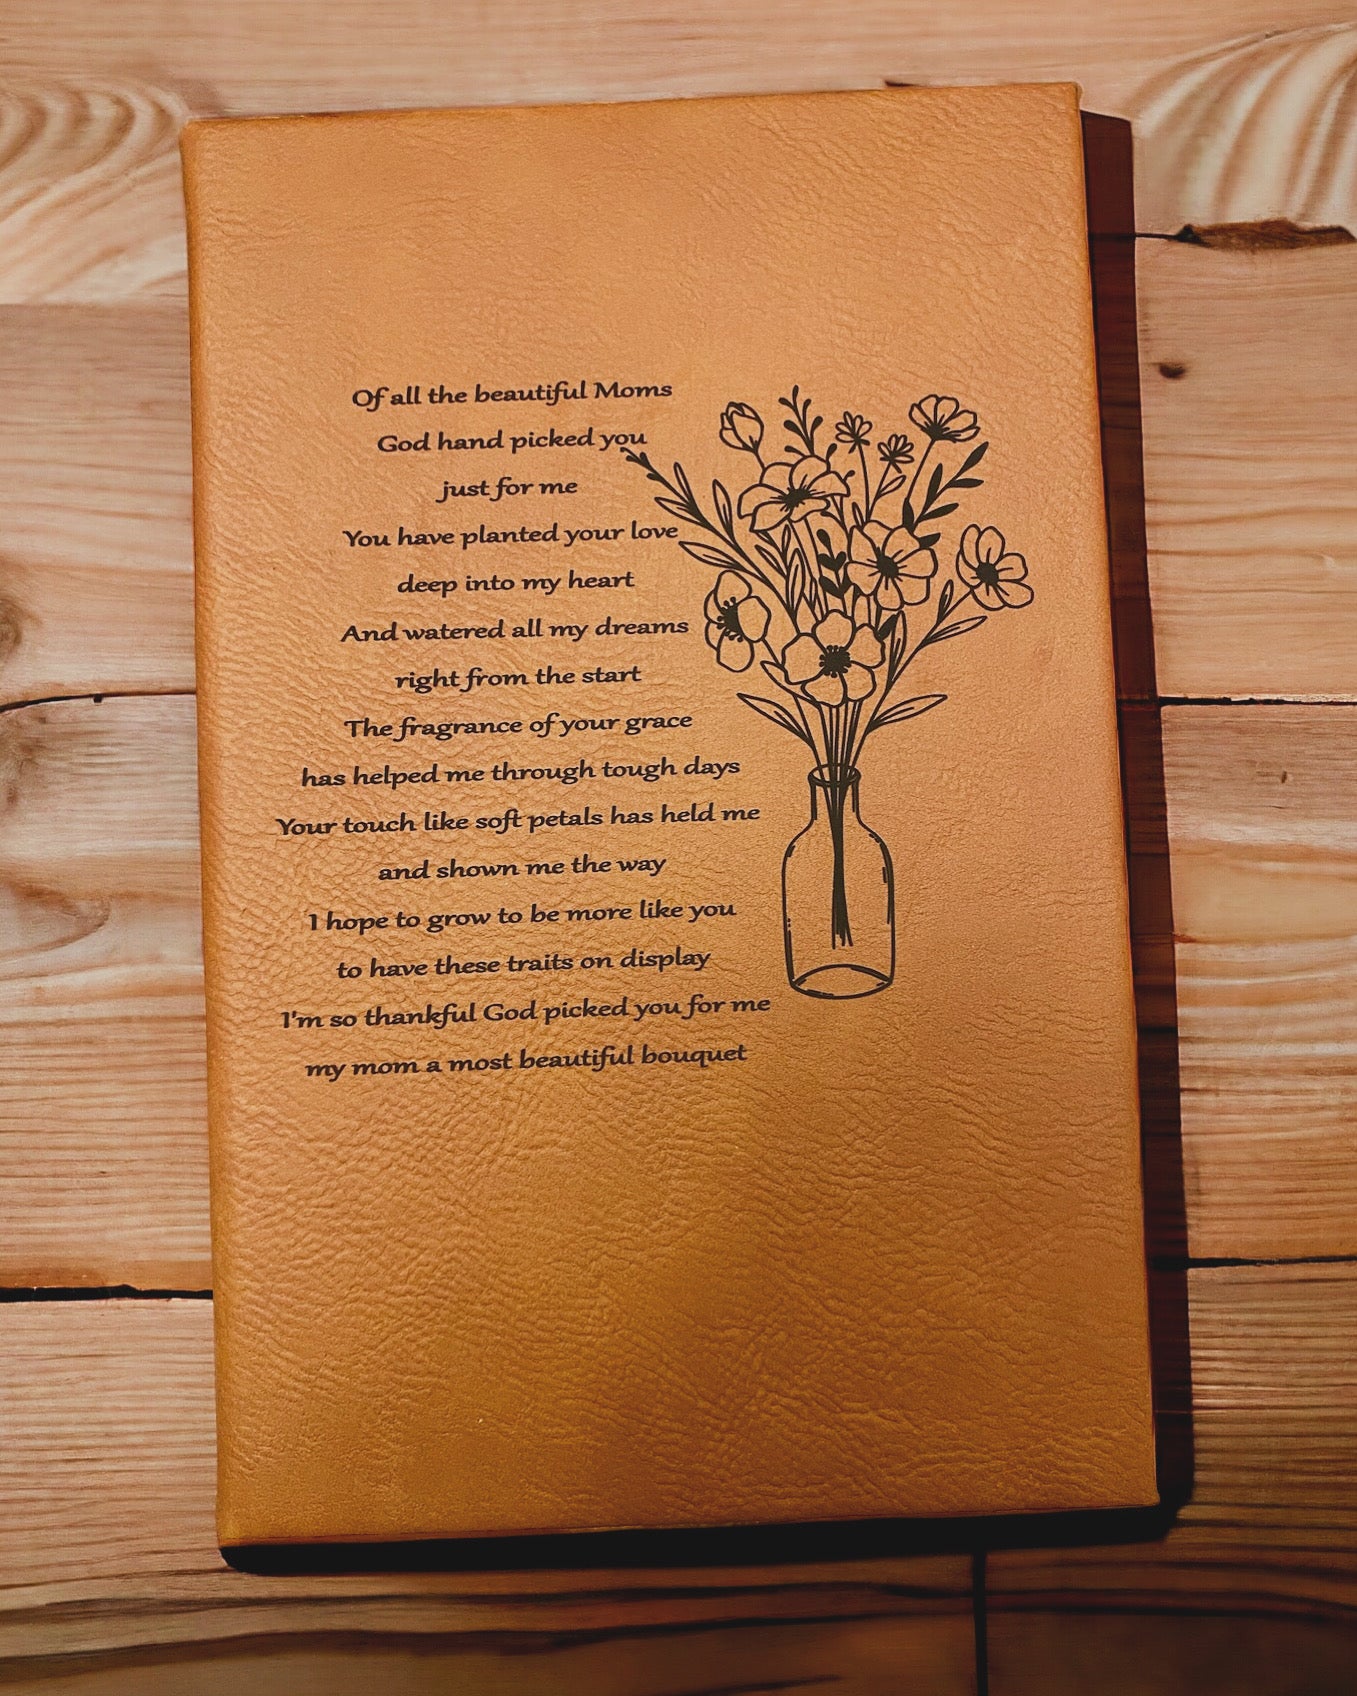 Of all the beautiful Moms
God hand picked you
just for me
You have planted your love
deep into my heart
And watered all my dreams
right from the start
The fragrance of your grace
has helped me through tough days
Your touch like soft petals has held me
and shown me the way
I hope to grow to be more like you
to have these traits on display
I'm so thankful God picked you for me
my mom a most beautiful bouquet